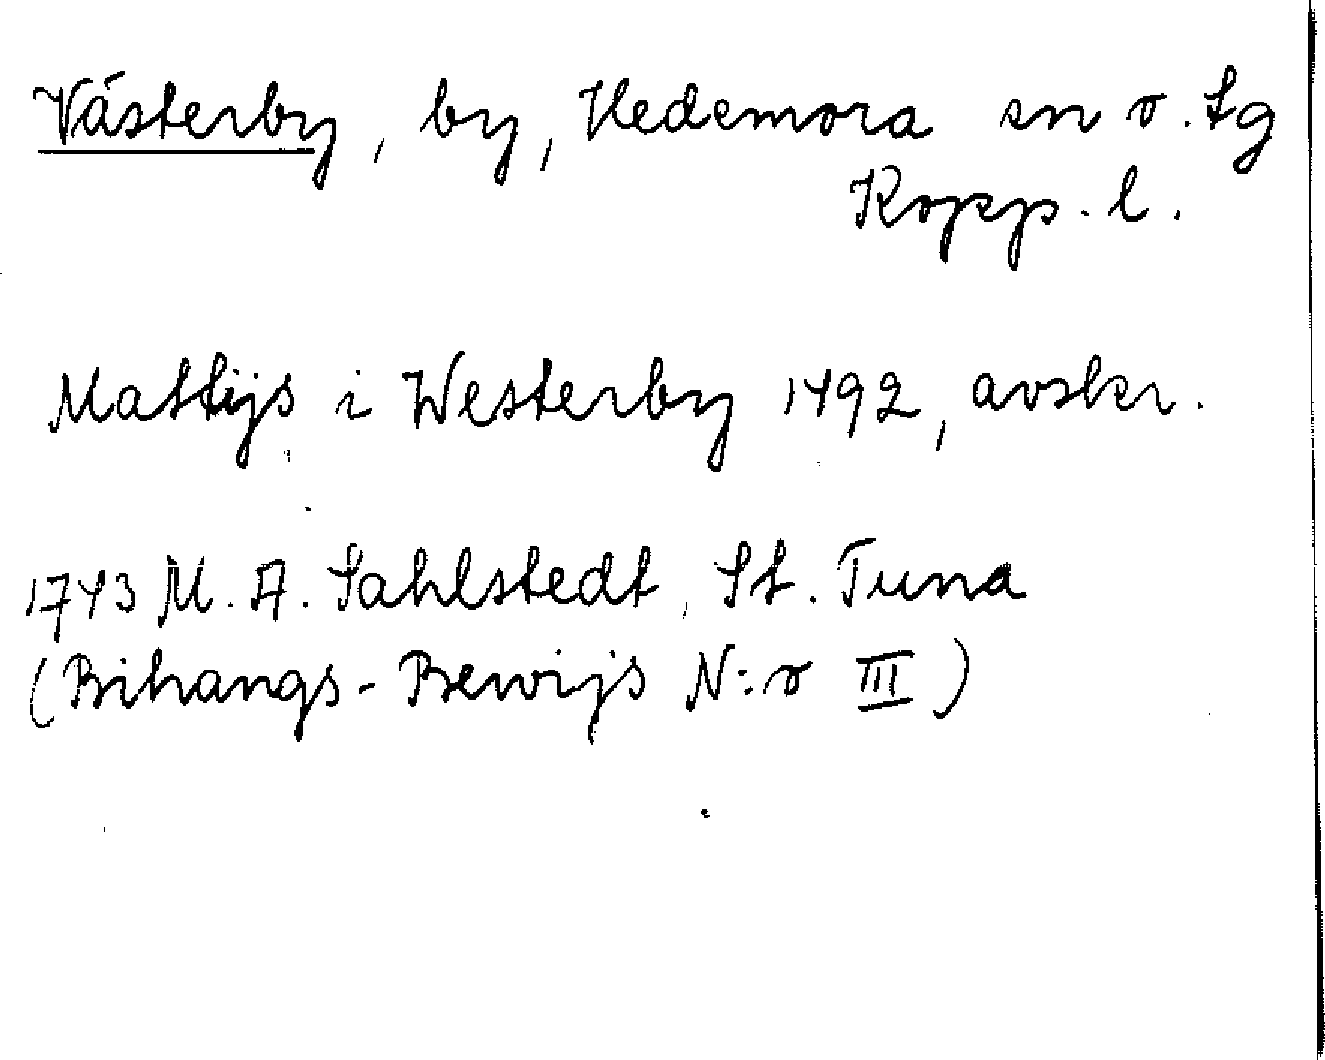 Västerby, by, Hedemora sn o. tg
Kopp. l.
Mattijs i Westerby 1492, avskr.
1743 M. A. Sahlstedt, St. Tuna
(Bihangs-Bewijs N:o III)